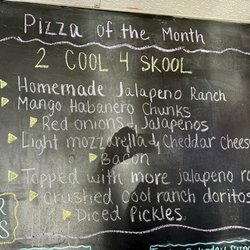 Pizza of the Month
2 COOL 4 SKOOL
Homemade Jalapeno Ranch
Mango Habanero Chunks
Red onions & Jalapenos
Light mozzarella & Cheddar Cheese
Bacon
Topped with more jalapeno ra
crushed cool ranch doritos
Diced Pickles